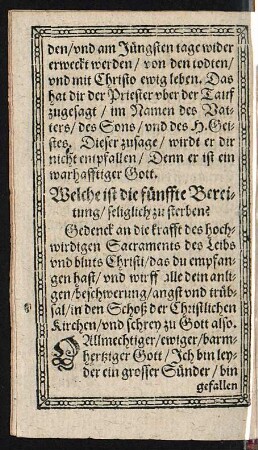 den/vnd am Jüngsten tage wider
erweckt werden/ von den todten/
vnd mit Christo ewig leben. Das
hat dir der Priester vber der Tauff
zugesagt/ im Namen des Vat-
ters/ des Sons/ vnd des H. Gei-
stes. Dieser zusage/ wirdt er dir
nicht entpfallen/ Denn er ist ein
warhafftiger Gott.
Welche ist die fünffte Berei-
tung/ seliglich zu sterben?
Gedenck an die krafft des hoch-
wirdigen Sacraments des Leibs
vnd bluts Christi/ das du empfan-
gen hast/ vnd wirff alle dein anli-
gen/ beschwerung/ angst vnd trüb-
sal/ in den Schoß der Christlichen
Kirchen/ vnd schrey zu Gott also.
O Allmechtiger/ ewiger/ barm-
hertziger Gott/ Ich bin ley-
der ein grosser Sünder/ bin
gefallen